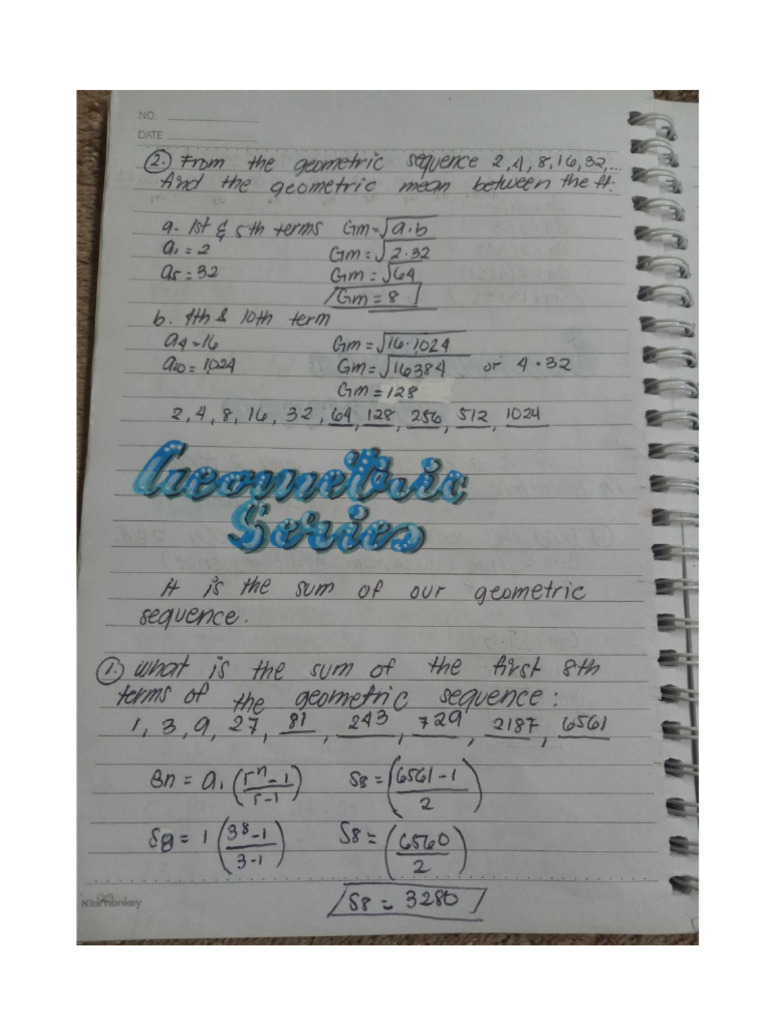 NO.
DATE
2. From the geometric sequence 2,4,8,16,32,...
find the geometric mean between the ff:
a. 1st & 5th terms Gm=√a·b
a1 = 2 Gm=√2·32
a5 = 32 Gm=√64
Gm = 8
b. 4th & 10th term
a4=16 Gm=√16·1,024
a10 = 1,024 Gm=√16384 or 4·32
Gm = 128
2, 4, 8, 16, 32, 64, 128, 256, 512, 1024
Geometric
Series
It is the sum of our geometric
sequence.
1. what is the sum of the first 8th
terms of the geometric sequence:
1, 3, 9, 27, 81, 243, 729, 2187, 6561
Sn = a1 (r^n-1 / r-1) S8 = (6561-1 / 2)
S8 = 1 (3^8-1 / 3-1) S8 = (6560 / 2)
S8 = 3280